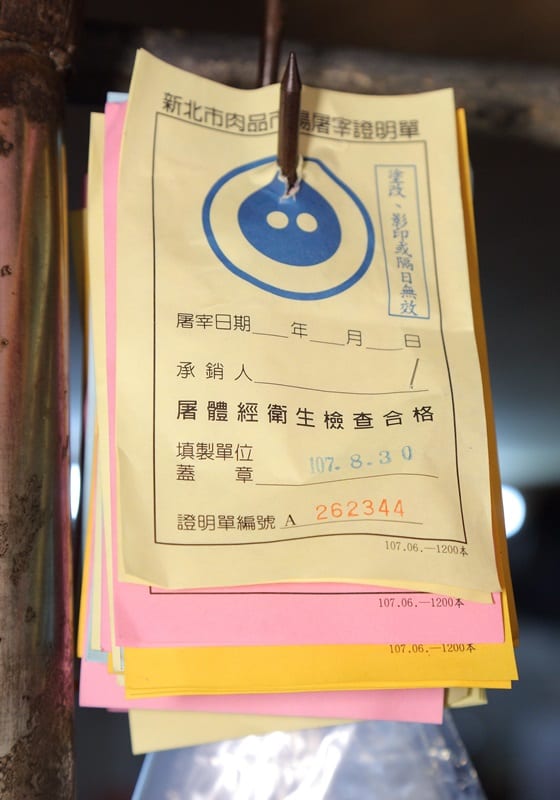 新北市肉品市場屠宰證明單
塗改、影印或隔日無效
屠宰日期 年 月 日
承銷人
屠體經衛生檢查合格
填製單位
蓋章 107. 8. 30
證明單編號 A 262344
107.06.—1200本
107.06.—1200本
107.06.—1200本